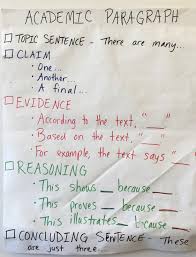 ACADEMIC PARAGRAPH
TOPIC SENTENCE - There are many...
CLAIM
• One...
• Another...
• A final...
EVIDENCE
• According to the text, "__"
• Based on the text, "__"
• For example, the text says "__"
REASONING
• This shows __ because __
• This proves __ because __
• This illustrates __ because __
CONCLUDING SENTENCE - These
are just three.